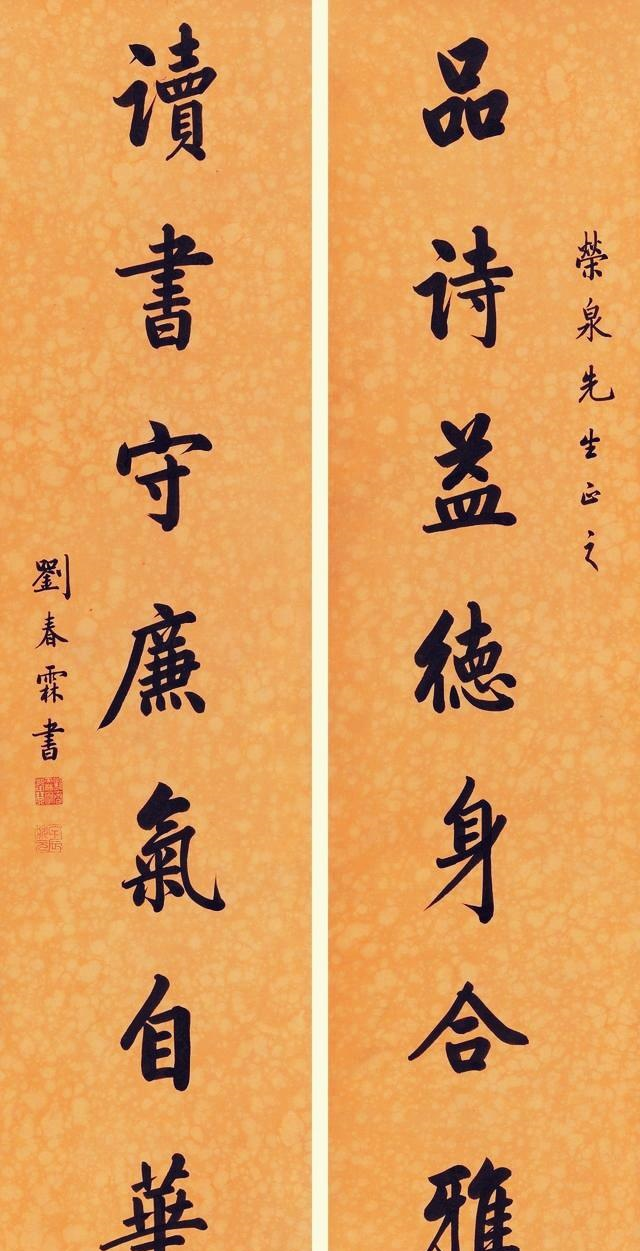 榮泉先生正之
品詩益德身合雅
讀書守廉氣自華
劉春霖書